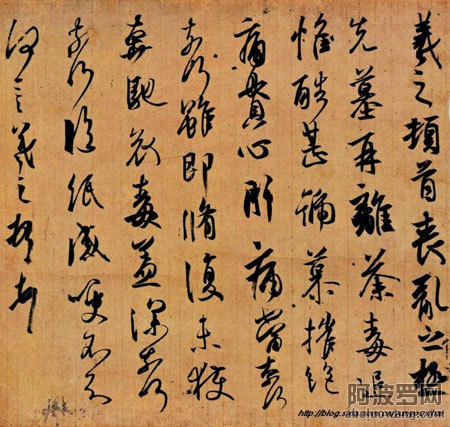 羲之頓首喪亂之極
先墓再離荼毒追
惟酷甚號慕摧絶
痛貫心肝痛當奈何
奈何雖即脩復未獲
奔馳哀毒益深奈何
奈何臨紙感哽不知
何言羲之頓首頓首
阿波罗网